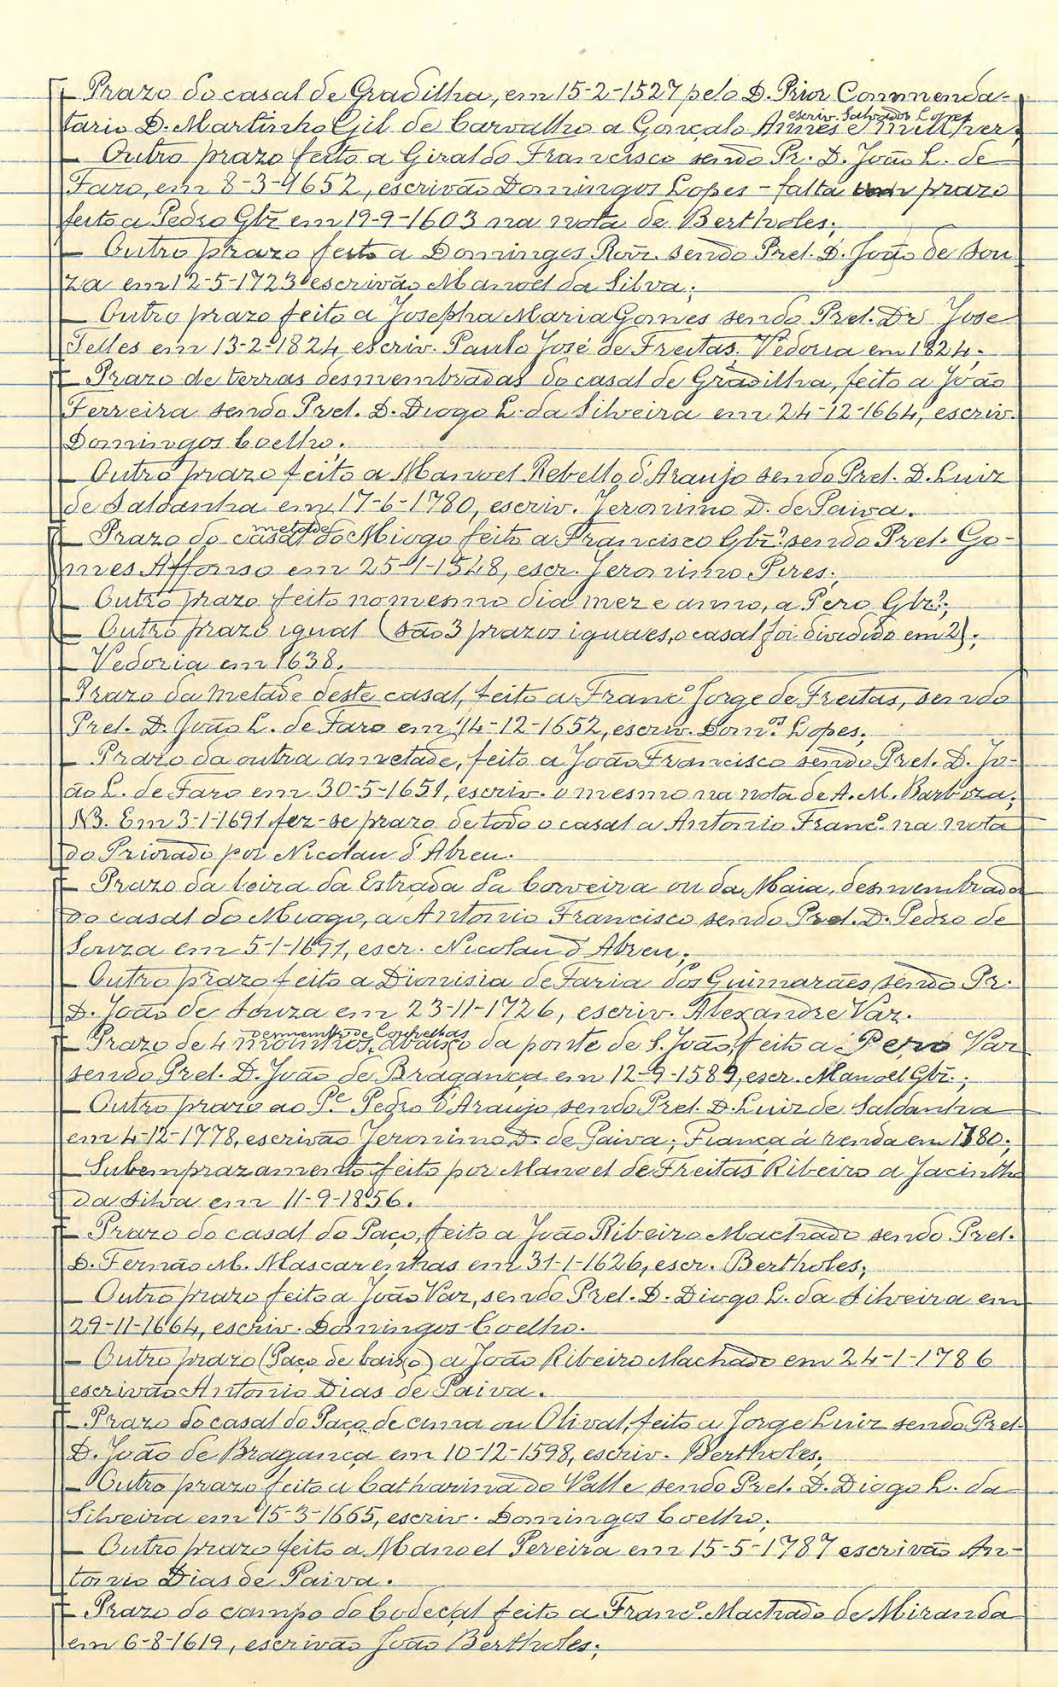 - Prazo do casal de Gradilha, em 15-2-1527 pelo D. Prior Commenda-
escriv. Salvador Lopes
tario D. Martinho Gil de Carvalho a Gonçalo Annes e mulher;
- Outro prazo feito a Giraldo Francisco sendo Pr. D. João L. de
Faro, em 8-3-1652, escrivão Domingos Lopes - falta prazo
feito a Pedro Glz em 19-9-1603 na nota de Bertholes;
- Outro prazo feito a Domingos Roiz. sendo Prel. D. João de Sou
za em 12-5-1723 escrivão Manoel da Silva;
- Outro prazo feito a Josepha Maria Gomes sendo Prel. Dr José
Telles em 13-2-1824, escriv. Paulo José de Freitas, Vedoria em 1824.
- Prazo de terras desmembradas do casal de Gradilha, feito a João
Ferreira sendo Prel. D. Diogo L. da Silveira em 24-12-1664, escriv.
Domingos Coelho.
- Outro prazo feito a Manoel Rebello d'Araujo sendo Prel. D. Luiz
de Saldanha em 17-6-1780, escriv. Jeronimo D. de Paiva.
metade
- Prazo do casal do Miogo feito a Francisco Glz? sendo Prel. Go-
mes Affonso em 25-1-1548, escr. Jeronimo Pires;
- Outro prazo feito no mesmo dia mez e anno, a Pero Glz?;
- Outro prazo igual (são 3 prazos iguaes, o casal foi dividido em 2);
- Vedoria em 1638.
Prazo da metade deste casal, feito a Franc.º Jorge de Freitas, sendo
Prel. D. João L. de Faro em 14-12-1652, escriv. Dom.os Lopes;
- Prazo da outra ametade, feito a João Francisco sendo Prel. D. Jo-
ão L. de Faro em 30-5-1651, escriv. o mesmo na nota de A. M. Barboza;
NB. Em 3-1-1691 fez-se prazo de todo o casal a Antonio Franc.º na nota
do Priorado por Nicolau d'Abreu.
- Prazo da leira da Estrada da Corveira ou da Maia, desmembrado
do casal do Miogo, a Antonio Francisco sendo Prel. D. Pedro de
Souza em 5-1-1691, escr. Nicolau d'Abreu;
- Outro prazo feito a Dionisia de Faria dos Guimarães, sendo Pr.
D. João de Souza em 23-11-1726, escriv. Alexandre Vaz.
desmemb. de Courelhas
- Prazo de 4 moinhos, abaixo da ponte de S. João, feito a Pero Vaz
sendo Prel. D. João de Bragança em 12-9-1589, escr. Manoel Glz.;
- Outro prazo ao P.e Pedro d'Araujo, sendo Prel. D. Luiz de Saldanha
em 4-12-1778, escrivão Jeronimo D. de Paiva; Fiança á renda em 1780;
- Subemprazamento feito por Manoel de Freitas Ribeiro a Jacintho
da Silva em 11-9-1856.
- Prazo do casal do Paço, feito a João Ribeiro Machado sendo Prel.
D. Fernão M. Mascarenhas em 31-1-1626, escr. Bertholes;
- Outro prazo feito a João Vaz, sendo Prel. D. Diogo L. da Silveira em
29-11-1664, escriv. Domingos Coelho.
- Outro prazo (Paço de baixo) a João Ribeiro Machado em 24-1-1786
escrivão Antonio Dias de Paiva.
- Prazo do casal do Paço de cima ou Olival, feito a Jorge Luiz sendo Prel.
D. João de Bragança em 10-12-1598, escriv. Bertholes;
- Outro prazo feito a Catharina do Valle sendo Prel. D. Diogo L. da
Silveira em 15-3-1665, escriv. Domingos Coelho;
- Outro prazo feito a Manoel Pereira em 15-5-1787 escrivão An-
tonio Dias de Paiva.
- Prazo do campo do Codeçal feito a Franc.º Machado de Miranda
em 6-8-1619, escrivão João Bertholes;